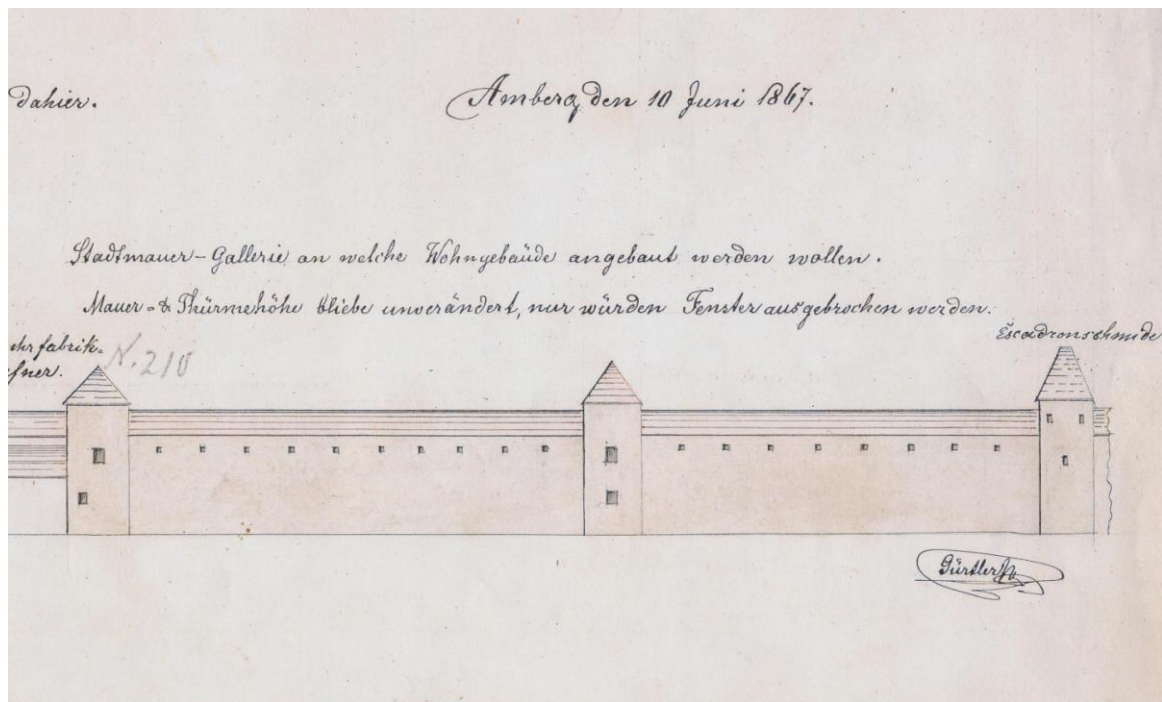 dahier.
Amberg den 10 Juni 1867.
Stadtmauer-Gallerie an welche Wohngebäude angebaut werden wollen.
Mauer- & Thürmehöhe bliebe unverändert, nur würden Fenster ausgebrochen werden.
Escadronschmide
ehrfabrik-
fner.
N. 210
Gürtler